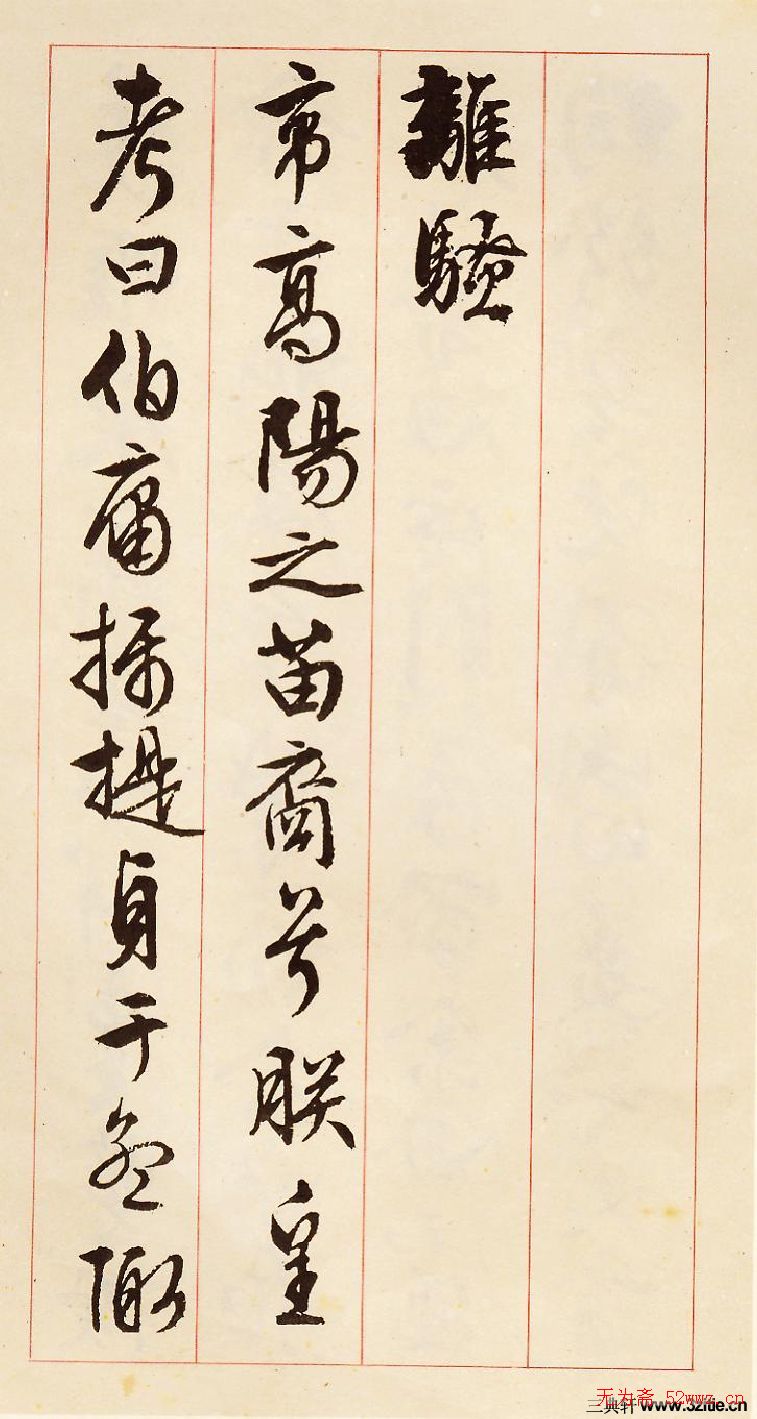 離騷
帝高陽之苗裔兮朕皇
考曰伯庸攝提貞于孟陬
无为斋 52wwz.cn
三典轩 www.32lue.cn